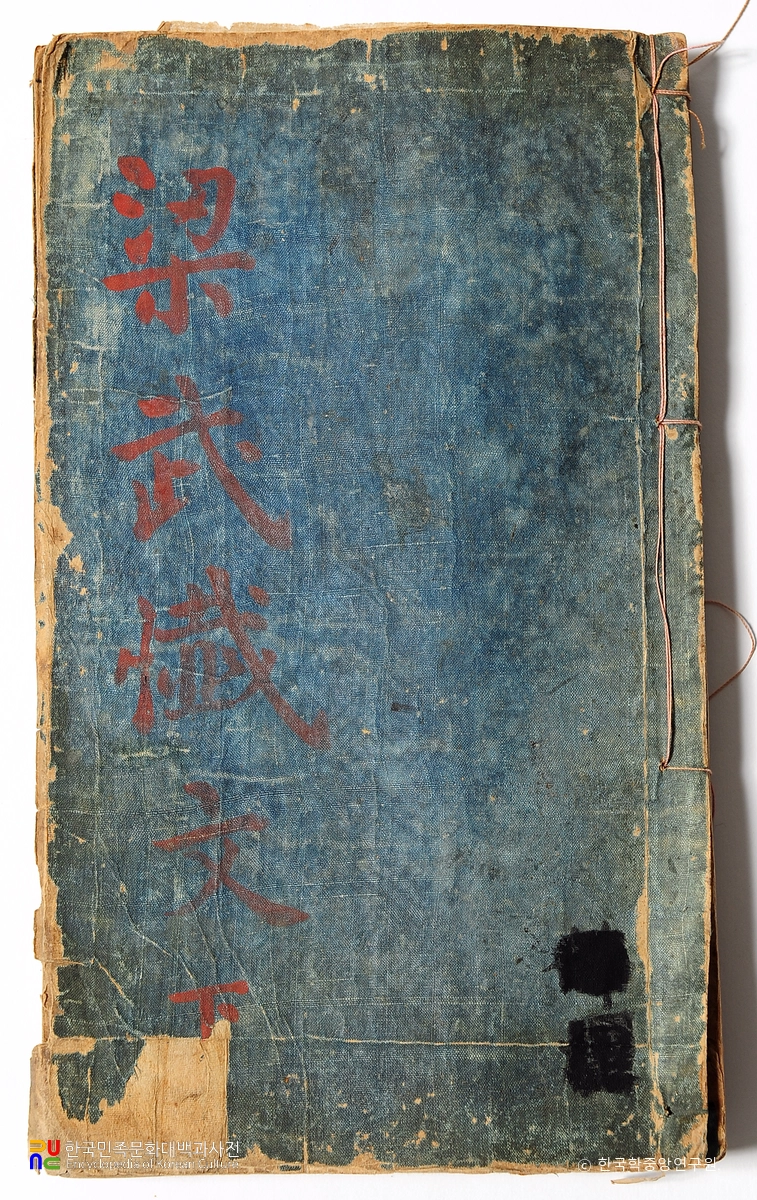 梁武懺文下
한국민족문화대백과사전
Encyclopedia of Korean Culture
© 한국학중앙연구원